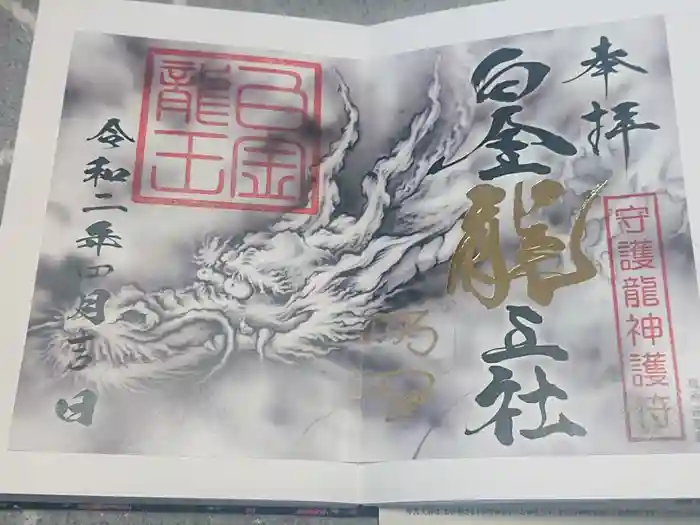 奉拝
白金龍王社
守護龍神護符
白金
龍王
令和二年四月十六日